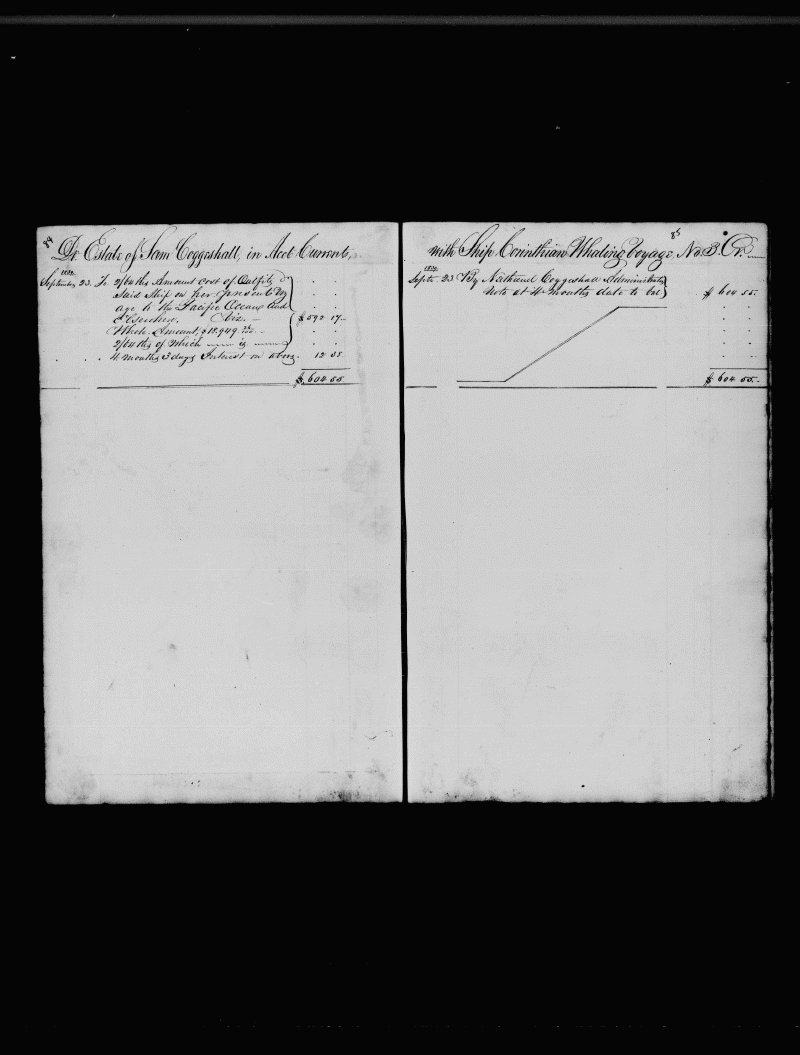 84
Dr. Estate of Sam Coggeshall, in Acct Current,
September 23. To 2/64ths Amount cost of Outfits &
said Ship on her present Voy
age to the Pacific Oceans and
Elsewhere. Viz. $592 17
Whole Amount, $18.949
2/64ths of which is
4 months 3 days Interest on above. 12 38
$604 55
85
with Ship Corinthian Whaling Voyage, No. 3. Cr.
Septr 23 By Nathaniel Coggeshall Administrator
Note at 4 months date to bal $604 55
$604 55